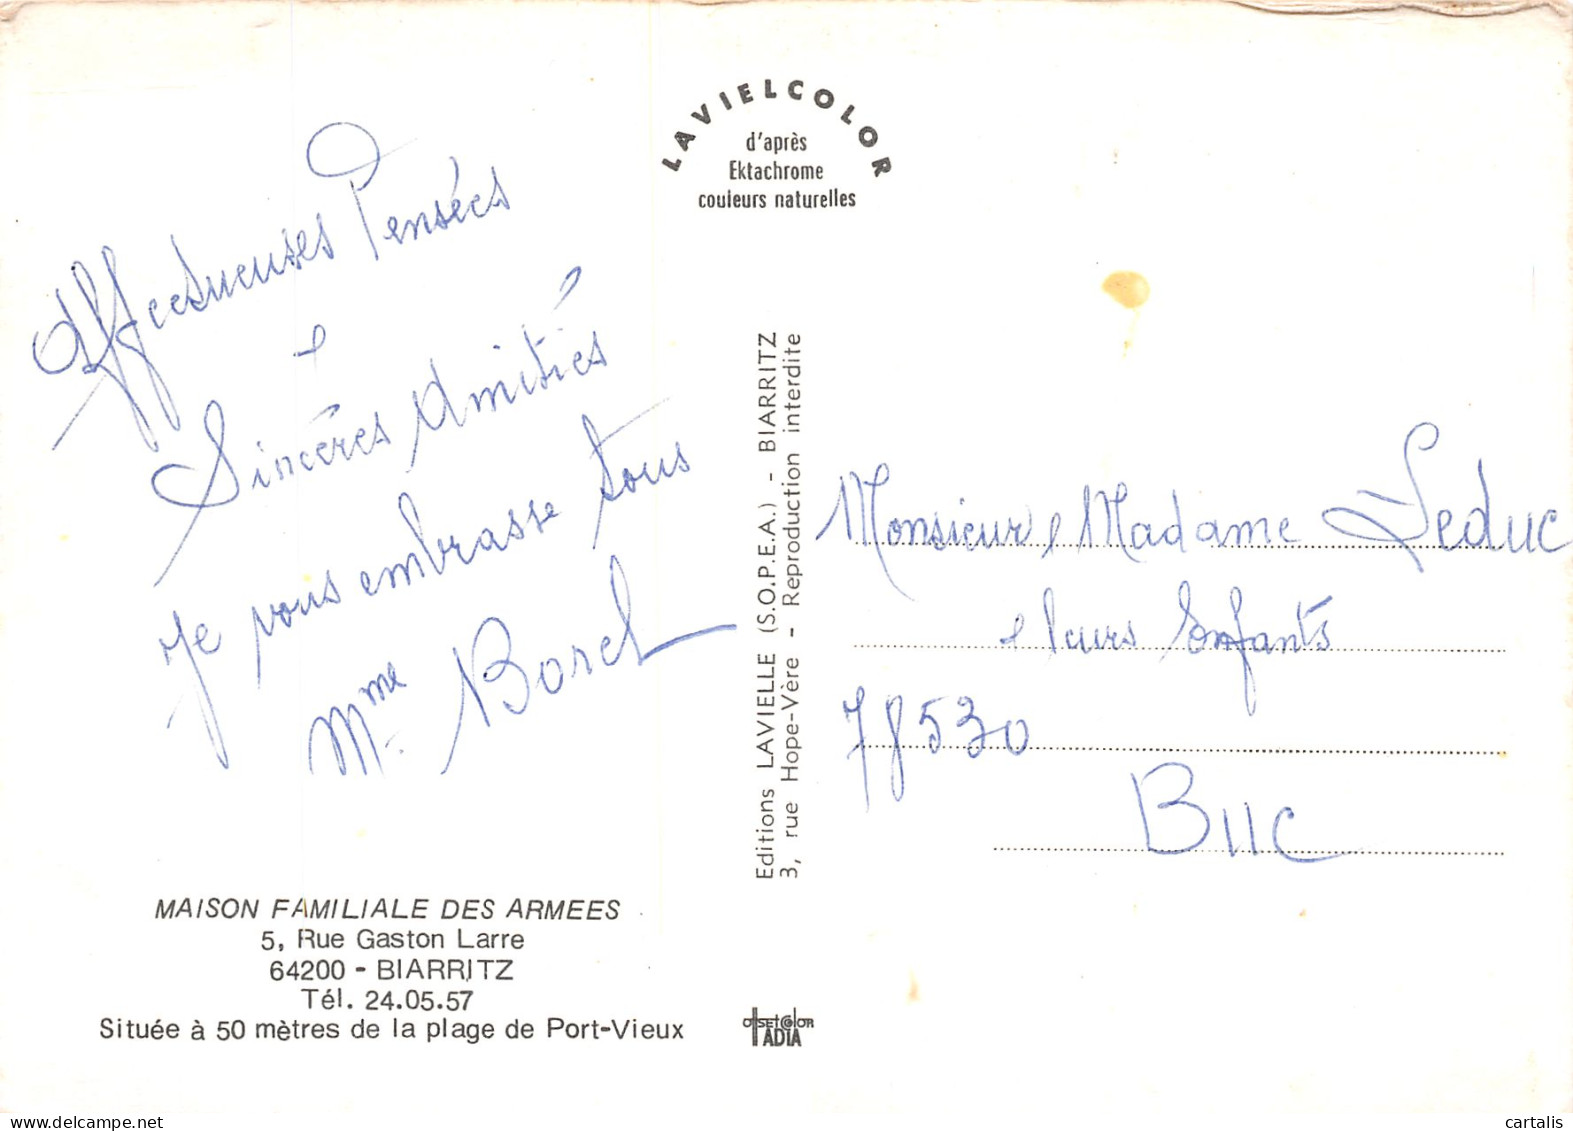 LAVIELCOLOR
d'après
Ektachrome
couleurs naturelles
Affectueuses Pensées
e
Sincères Amitiés
Je vous embrasse tous
Mme Borel
MAISON FAMILIALE DES ARMEES
5, Rue Gaston Larre
64200 - BIARRITZ
Tél. 24.05.57
Située à 50 mètres de la plage de Port-Vieux
Editions LAVIELLE (S.O.P.E.A.) - BIARRITZ
3, rue Hope-Vère - Reproduction interdite
OFFSET COLOR
ADIA
Monsieur e Madame Leduc
e leurs Enfants
78530
Buc
cartalis